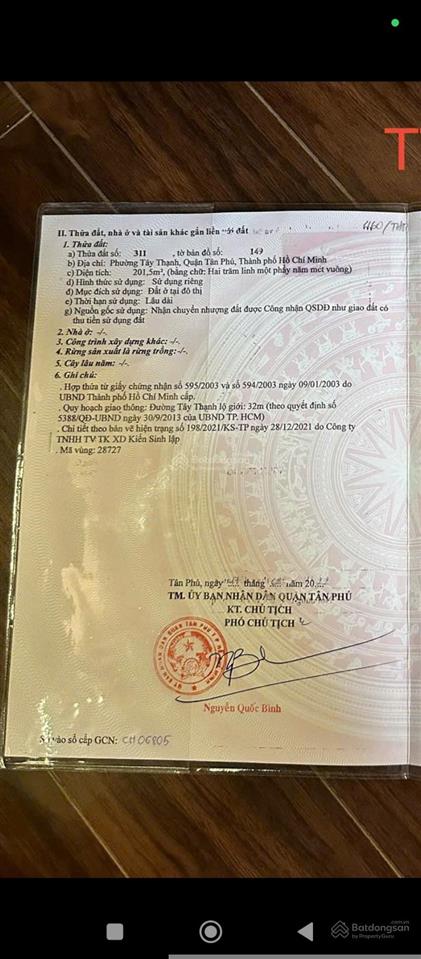 T
II. Thửa đất, nhà ở và tài sản khác gắn liền với đất
1. Thửa đất:
a) Thửa đất số: 311 , tờ bản đồ số: 149
b) Địa chỉ: Phường Tây Thạnh, Quận Tân Phú, Thành phố Hồ Chí Minh
c) Diện tích: 201,5m², (bằng chữ: Hai trăm linh một phẩy năm mét vuông)
d) Hình thức sử dụng: Sử dụng riêng
đ) Mục đích sử dụng: Đất ở tại đô thị
e) Thời hạn sử dụng: Lâu dài
g) Nguồn gốc sử dụng: Nhận chuyển nhượng đất được Công nhận QSDĐ như giao đất có
thu tiền sử dụng đất
2. Nhà ở: -/-.
3. Công trình xây dựng khác: -/-.
4. Rừng sản xuất là rừng trồng: -/-.
5. Cây lâu năm: -/-.
6. Ghi chú:
. Hợp thửa từ giấy chứng nhận số 595/2003 và số 594/2003 ngày 09/01/2003 do
UBND Thành phố Hồ Chí Minh cấp.
. Quy hoạch giao thông: Đường Tây Thạnh lộ giới: 32m (theo quyết định số
5388/QĐ-UBND ngày 30/9/2013 của UBND TP. HCM)
. Chi tiết theo bản vẽ hiện trạng số 198/2021/KS-TP ngày 28/12/2021 do Công ty
TNHH TV TK XD Kiến Sinh lập
. Mã vùng: 28727
Batdongsan
Tân Phú, ngày tháng năm 20
TM. ỦY BAN NHÂN DÂN QUẬN TÂN PHÚ
KT. CHỦ TỊCH
PHÓ CHỦ TỊCH
Nguyễn Quốc Bình
vào sổ cấp GCN: CH06805
Batdongsan
.com.vn
by PropertyGuru